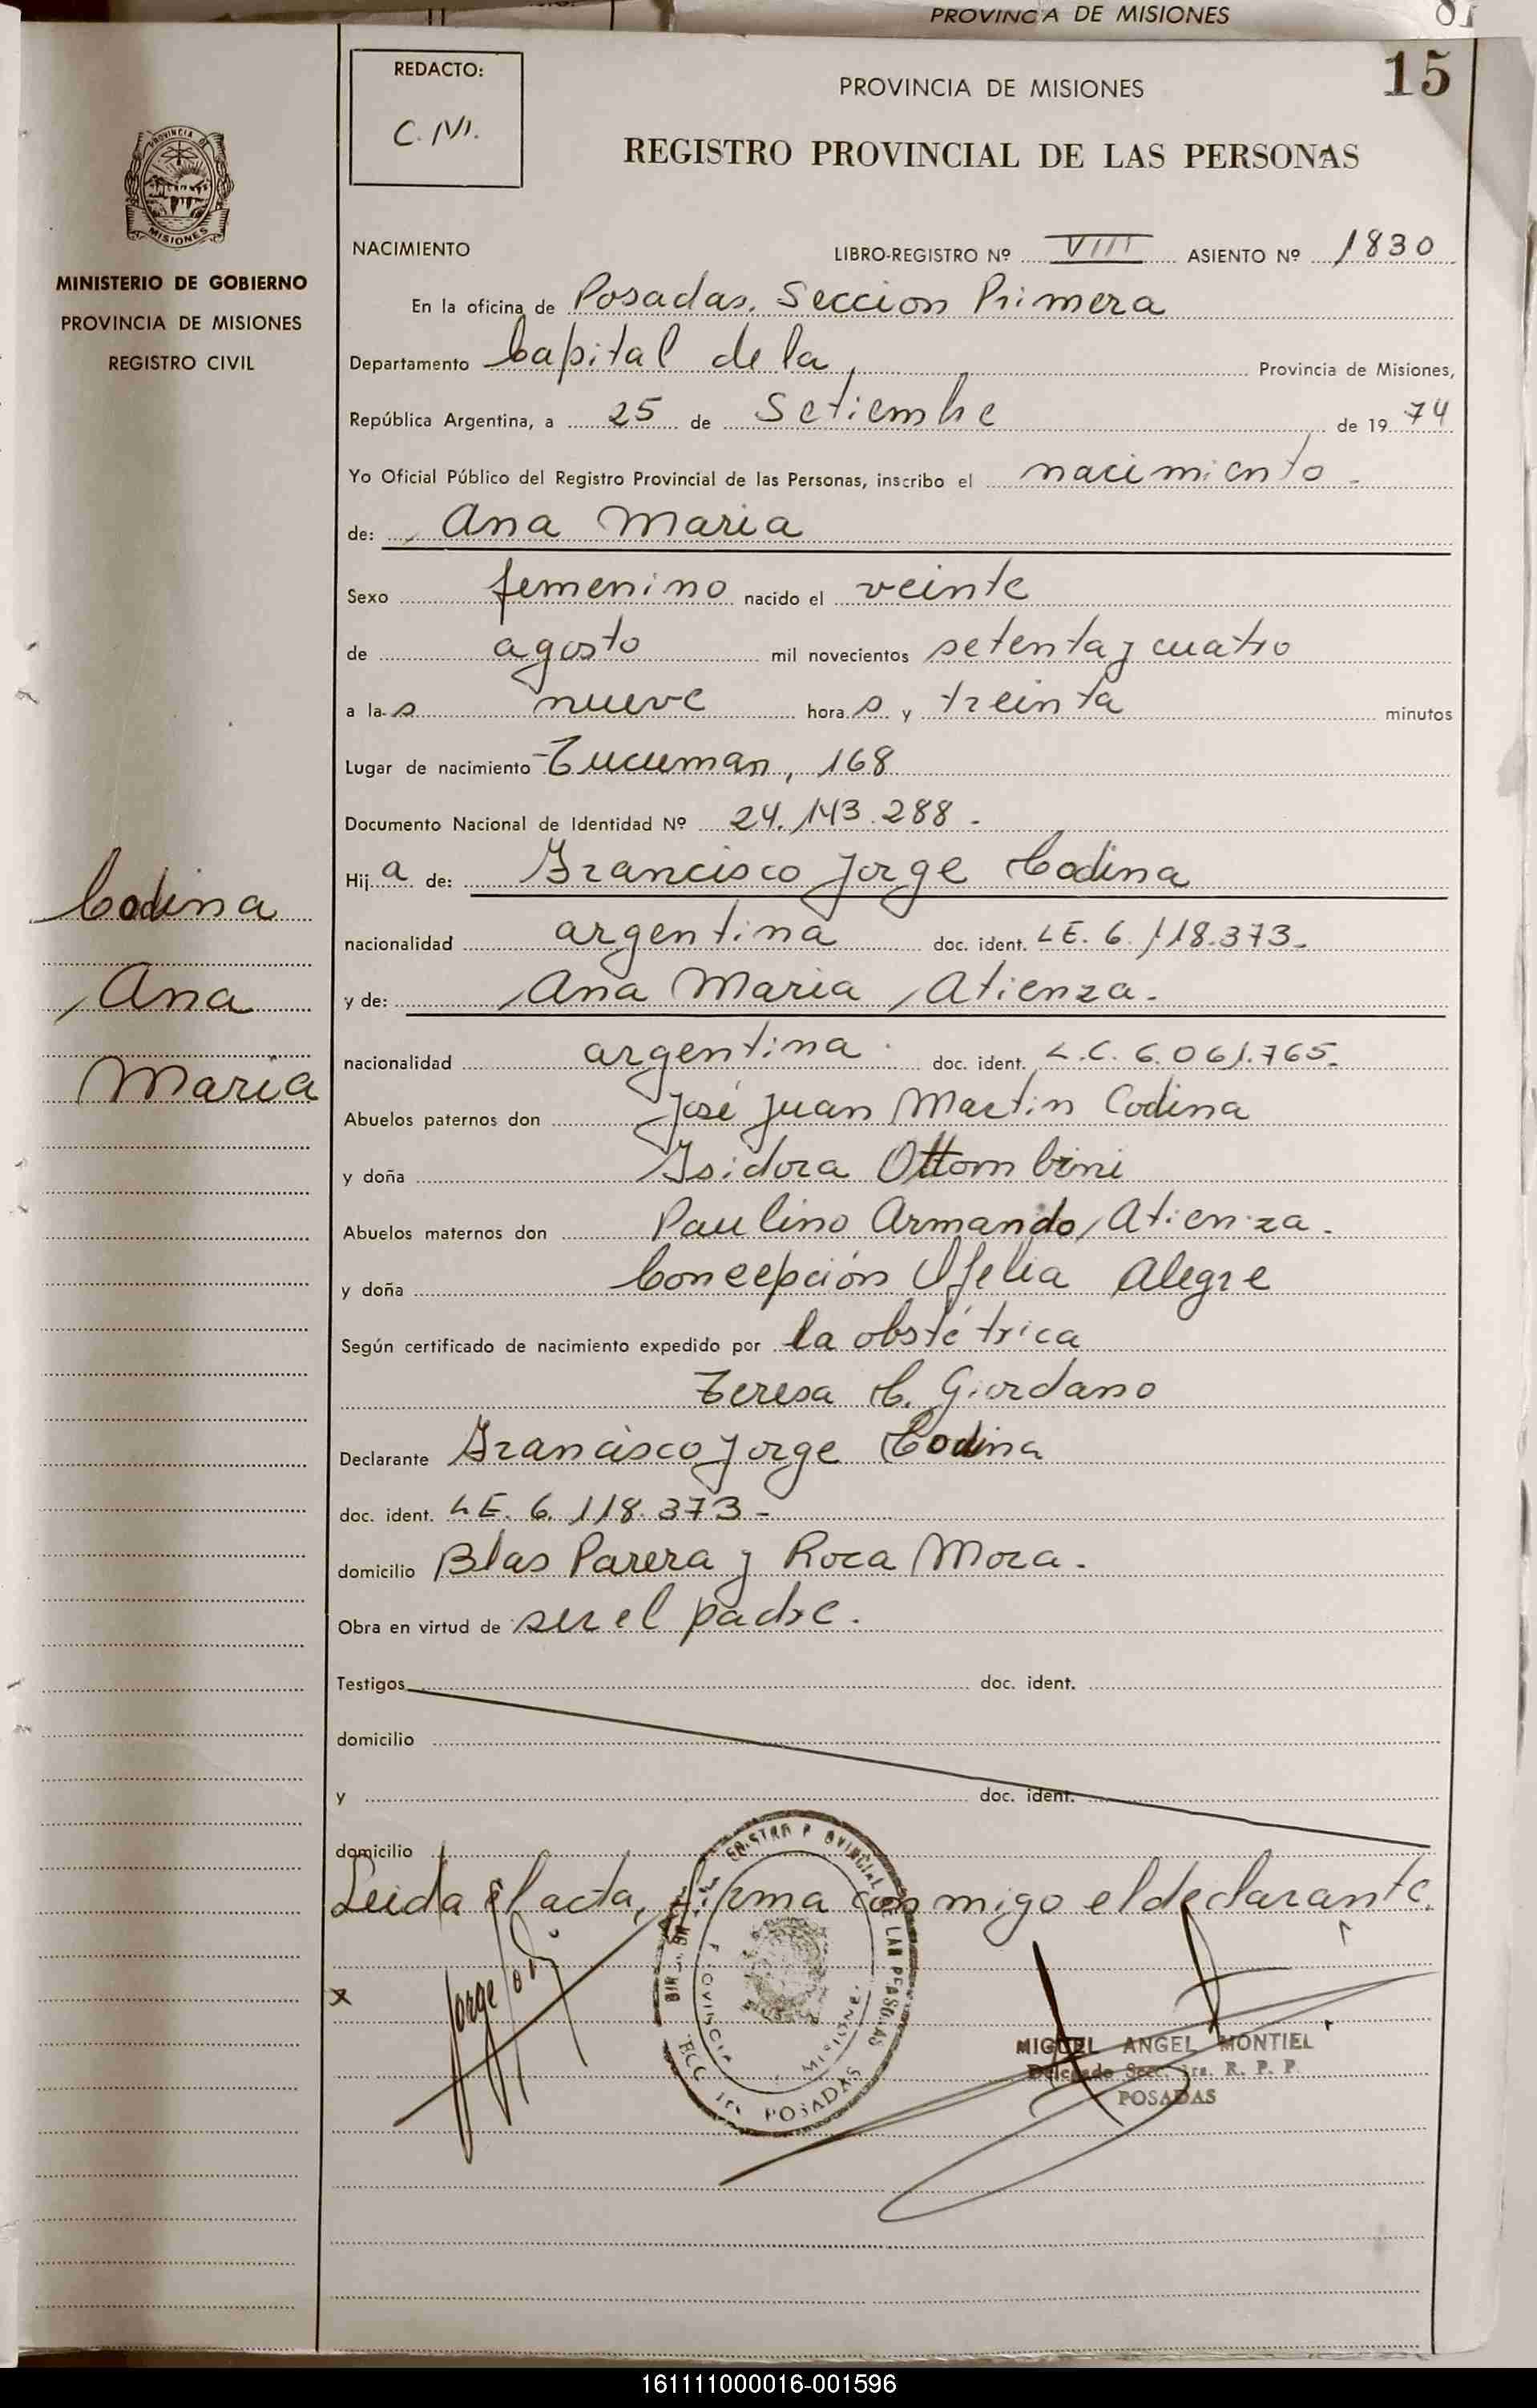 PROVINCIA DE MISIONES
15
REDACTO:
PROVINCIA DE MISIONES
REGISTRO PROVINCIAL DE LAS PERSONAS
PROVINCIA DE
MISIONES
MINISTERIO DE GOBIERNO
PROVINCIA DE MISIONES
REGISTRO CIVIL
NACIMIENTO LIBRO-REGISTRO Nº VIII ASIENTO Nº 1830
En la oficina de Posadas. Seccion Primera
Departamento Capital de la Provincia de Misiones,
República Argentina, a 25 de Setiembre de 19 74
Yo Oficial Público del Registro Provincial de las Personas, inscribo el nacimiento.
de: Ana Maria
Sexo femenino nacido el veinte
de agosto mil novecientos setenta y cuatro
a las nueve horas y treinta minutos
Lugar de nacimiento Tucuman, 168
Documento Nacional de Identidad Nº 24.143.288.
Hija de: Francisco Jorge Codina
nacionalidad argentina doc. ident. LE. 6.118.373.
y de: Ana Maria Atienza.
nacionalidad argentina doc. ident. L.C. 6.061.765.
Abuelos paternos don José Juan Martin Codina
y doña Isidora Ottombrini
Abuelos maternos don Paulino Armando Atienza.
y doña Concepción Ofelia Alegre
Según certificado de nacimiento expedido por la obstétrica
Teresa C. Giordano
Declarante Francisco Jorge Codina
doc. ident. LE. 6.118.373-
domicilio Blas Parera y Roca Mora.
Obra en virtud de ser el padre.
Testigos doc. ident.
domicilio
y doc. ident.
domicilio
Leida el acta, firma conmigo el declarante.
Codina
Ana
Maria
x
Jorge
POSADAS
MIGUEL ANGEL MONTIEL
Delegado Secc. 1ra. R. P. P.
POSADAS
161111000016-001596